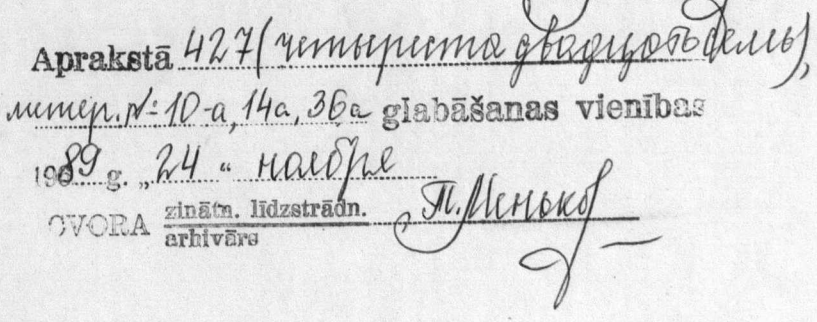 Aprakstā 427 (четыреста двадцать семь),
литер. № 10-а, 14а, 36а glabāšanas vienības
1989 g. „24“ ноября
CVORA zinātn. līdzstrādn. Т. Менько
arhivārs